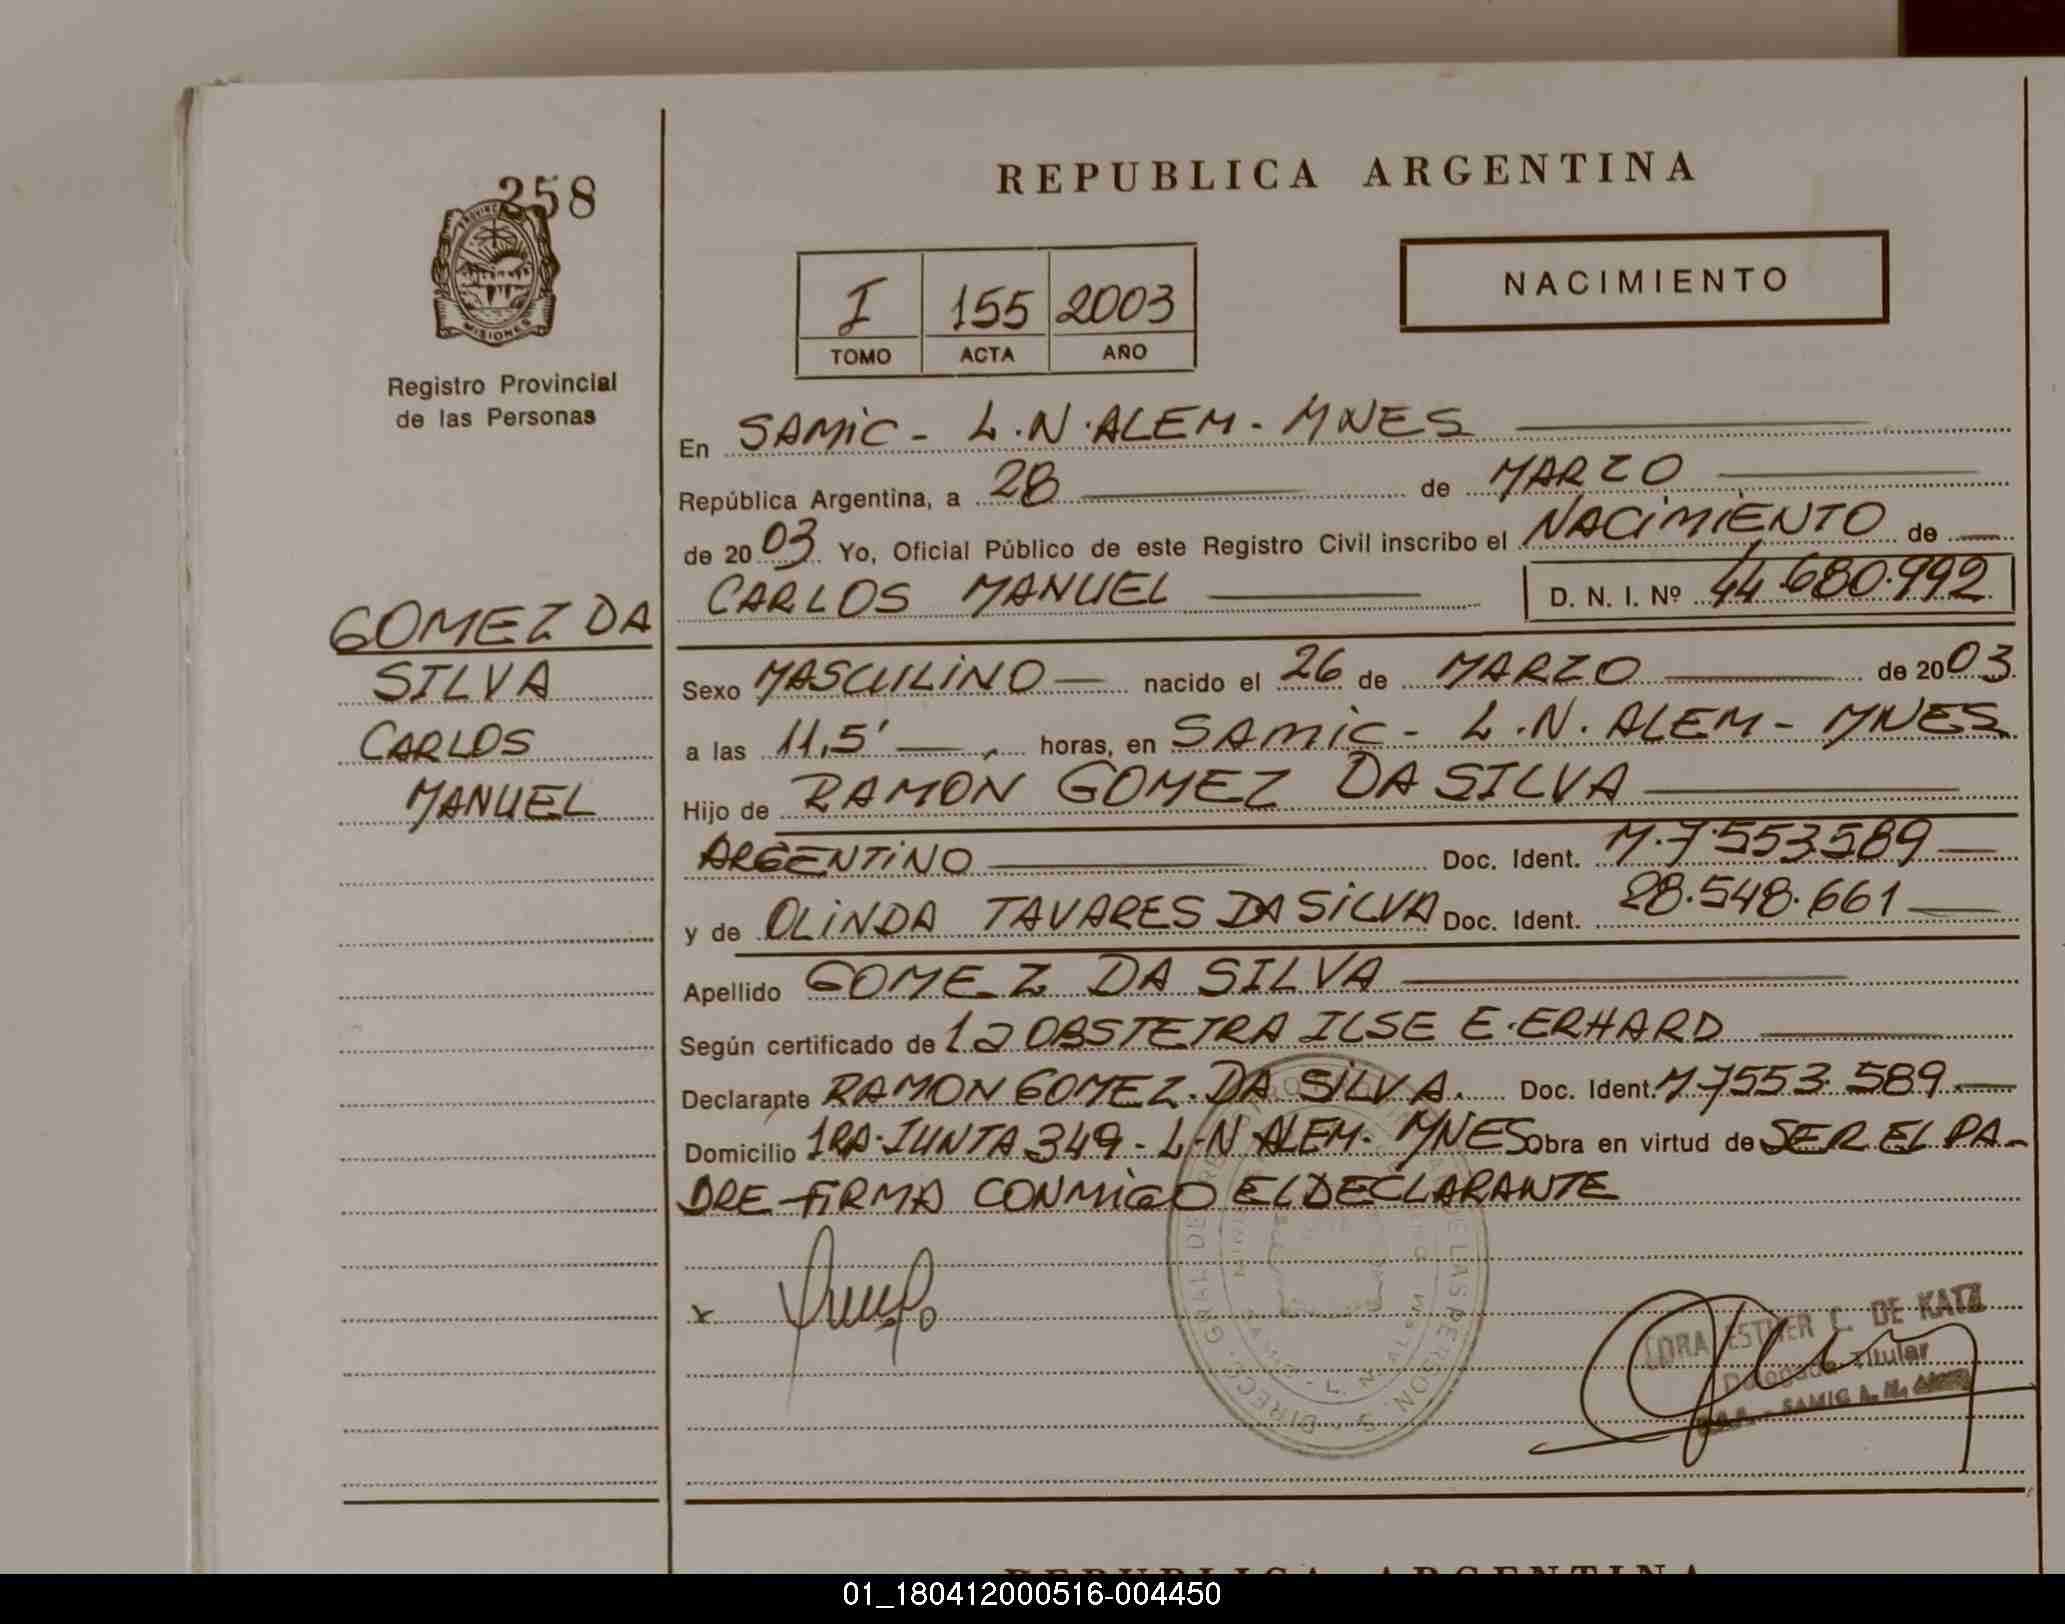 258
PROVINCIA
MISIONES
Registro Provincial
de las Personas
REPUBLICA ARGENTINA
I 155 2003
TOMO ACTA AÑO
NACIMIENTO
En SAMIC - L.N.ALEM - MNES
República Argentina, a 28 de MARZO
de 2003 Yo, Oficial Público de este Registro Civil inscribo el NACIMIENTO de
CARLOS MANUEL D. N. I. Nº 44.680.992
GOMEZ DA
SILVA
CARLOS
MANUEL
Sexo MASCULINO nacido el 26 de MARZO de 2003
a las 11,5' horas, en SAMIC - L.N. ALEM - MNES
Hijo de RAMÓN GOMEZ DA SILVA
ARGENTINO Doc. Ident. M.7.553.589
y de OLINDA TAVARES DA SILVA Doc. Ident. 28.548.661
Apellido GOMEZ DA SILVA
Según certificado de la OBSTETRA ILSE E. ERHARD
Declarante RAMON GOMEZ DA SILVA. Doc. Ident. M 7553.589
Domicilio 1RA. JUNTA 349 - L.N ALEM. MNES Obra en virtud de SER EL PA-
DRE - FIRMA CONMIGO EL DECLARANTE
x
ESTHER C. DE KATZ
Delegada Titular
SAMIC L. N. ALEM
REPUBLICA ARGENTINA
01_180412000516-004450